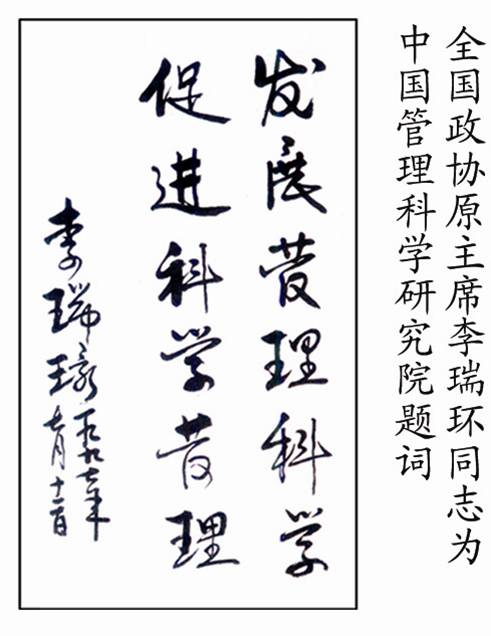 全国政协原主席李瑞环同志为
中国管理科学研究院题词
发展管理科学
促进科学管理
李瑞環